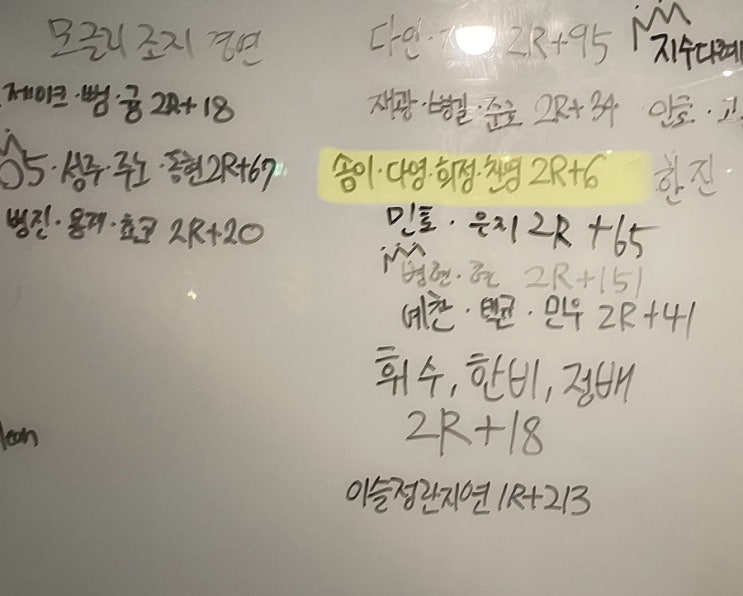 모글리 조지 경연
제이크·뻠·귱 2R+18
05·성주·주노·동현 2R+67
병진·용재·효근 2R+20
leon
다인· 2R+95
재광·병길·준호 2R+34
송이·다영·희정·찬영 2R+6
민트·은지 2R+65
병현·현 2R+151
예찬·택균·민우 2R+41
휘수, 한비, 정배
2R+18
이슬정란지연 1R+213
지수다예
민트·고
한진